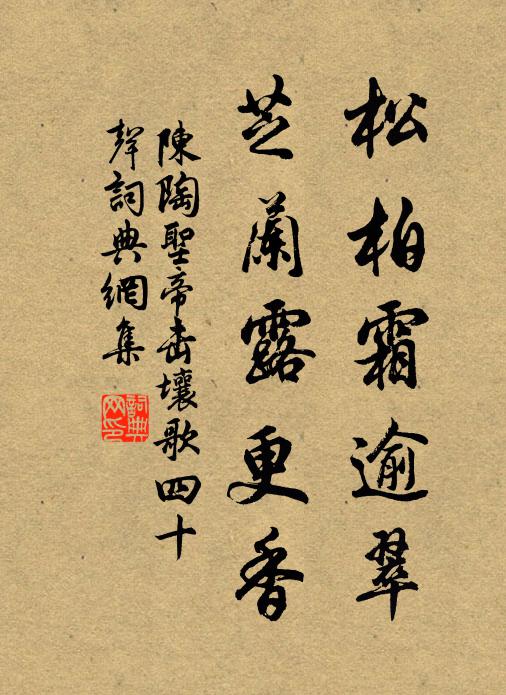 松柏霜逾翠
芝蘭露更香
陳陶聖帝擊壤歌四十
聲詞典網集
詞典網印